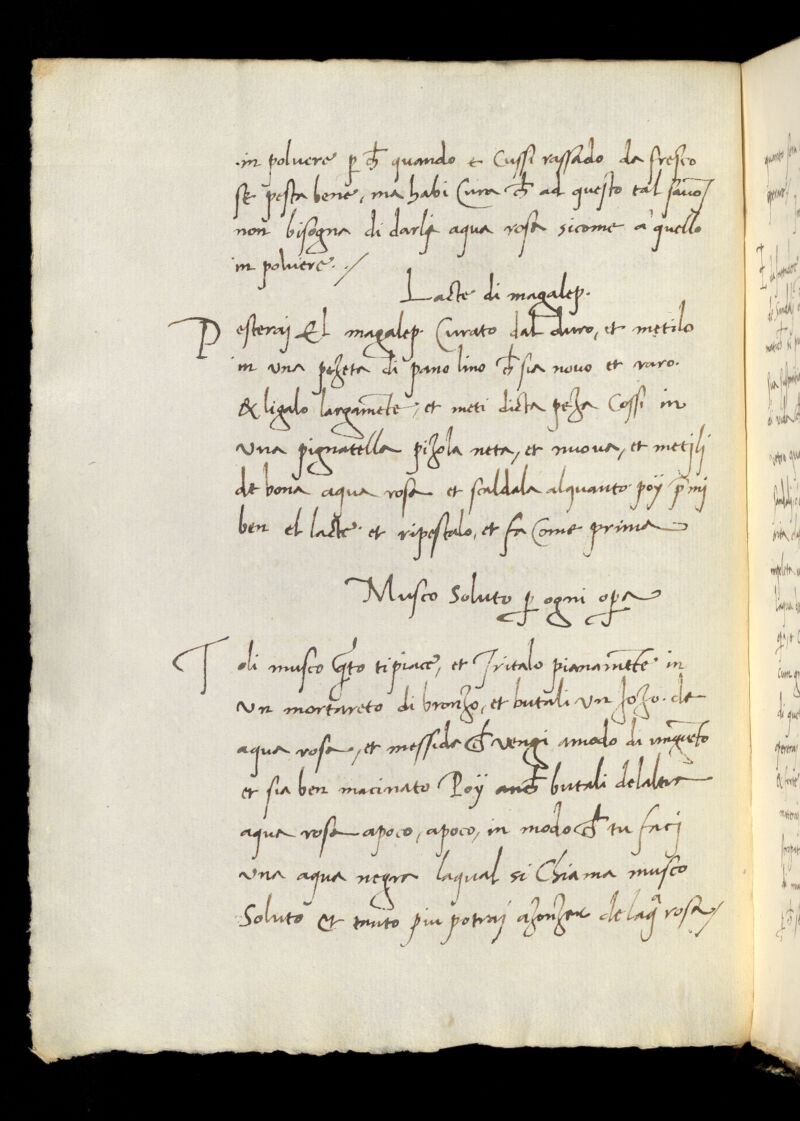 in polvere p ch quando e Cussi rassado da fresco
se pesta bene, ma habi Cura ch ad questo tal savo/
non bisogna di darli aqua rosa sicome a quello
in polvere ./
Lacte di magalep.
Pesterai El magalep. Curato dal duro, et metilo
in una pezeta di pano lino ch sia novo et raro.
& ligalo largamēte, et meti dicta peza Cossi in
una pignatella pizola neta, et nuova, et metili
de bona aqua rosa et scaldala alquanto poy p̄mi
ben el lacte et ripestalo, et fa Come prima
Musco Soluto p ogni opa
Toli musco q̄to ti piace, et Tritalo pianamēte in
un mortareto di bronzo, et butali un zozo de
aqua rosa, et messida ch vengi amodo di unguēto
et sia ben macinato Poy anch butali delaltra
aqua rosa apoco, apoco, in modo ch tu faci
una aqua negra laqual si Chiama musco
Soluto et tanto piu potrai azonzer de laq̄ rosa/